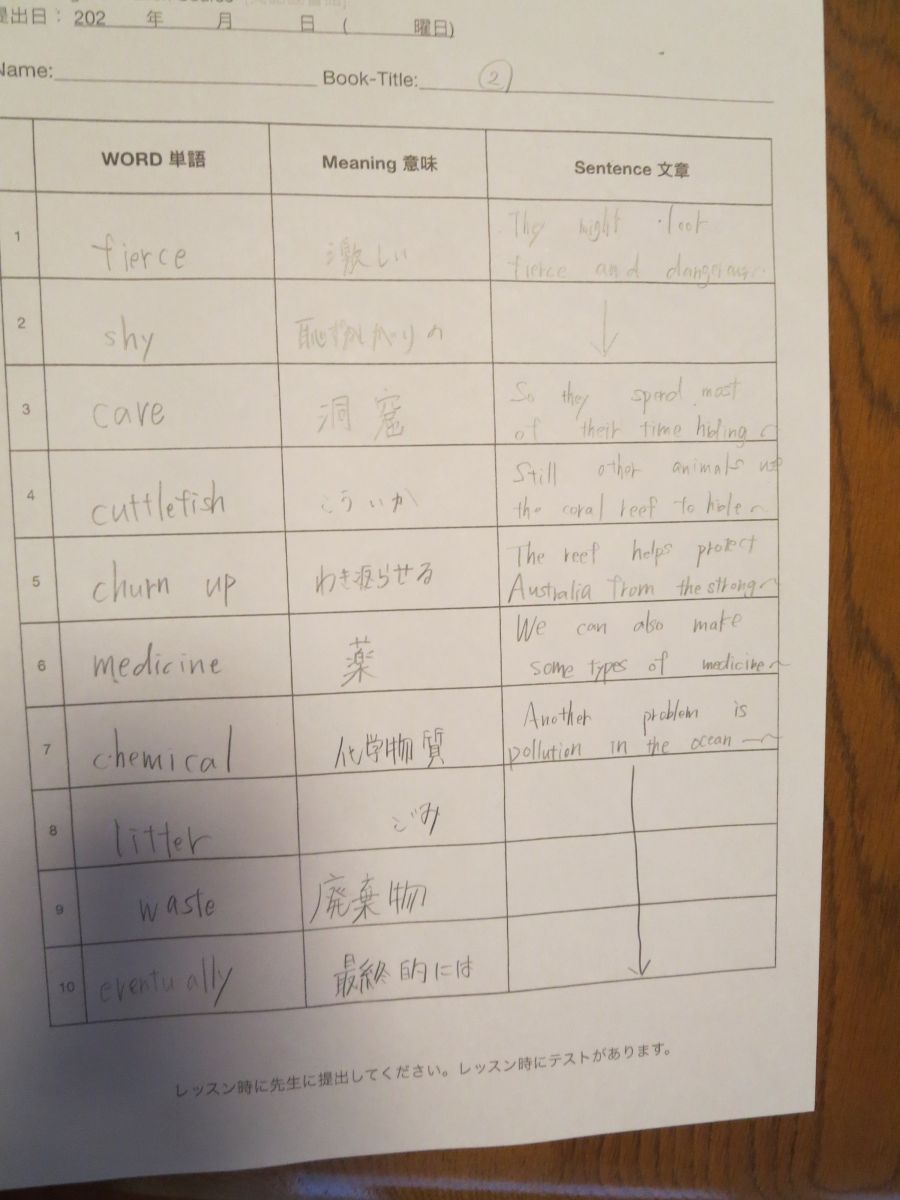 提出日： 202 年 月 日 ( 曜日)
Name: Book-Title: ②
WORD 単語 Meaning 意味 Sentence 文章
1 fierce 激しい They might look
fierce and dangerous~
2 shy 恥ずかしがりの
3 cave 洞窟 So they spend most
of their time hiding~
4 cuttlefish こういか Still other animals use
the coral reef to hide~
5 churn up わき返らせる The reef helps protect
Australia from the strong~
6 medicine 薬 We can also make
some types of medicine~
7 chemical 化学物質 Another problem is
pollution in the ocean ~
8 litter ごみ
9 waste 廃棄物
10 eventually 最終的には
レッスン時に先生に提出してください。レッスン時にテストがあります。